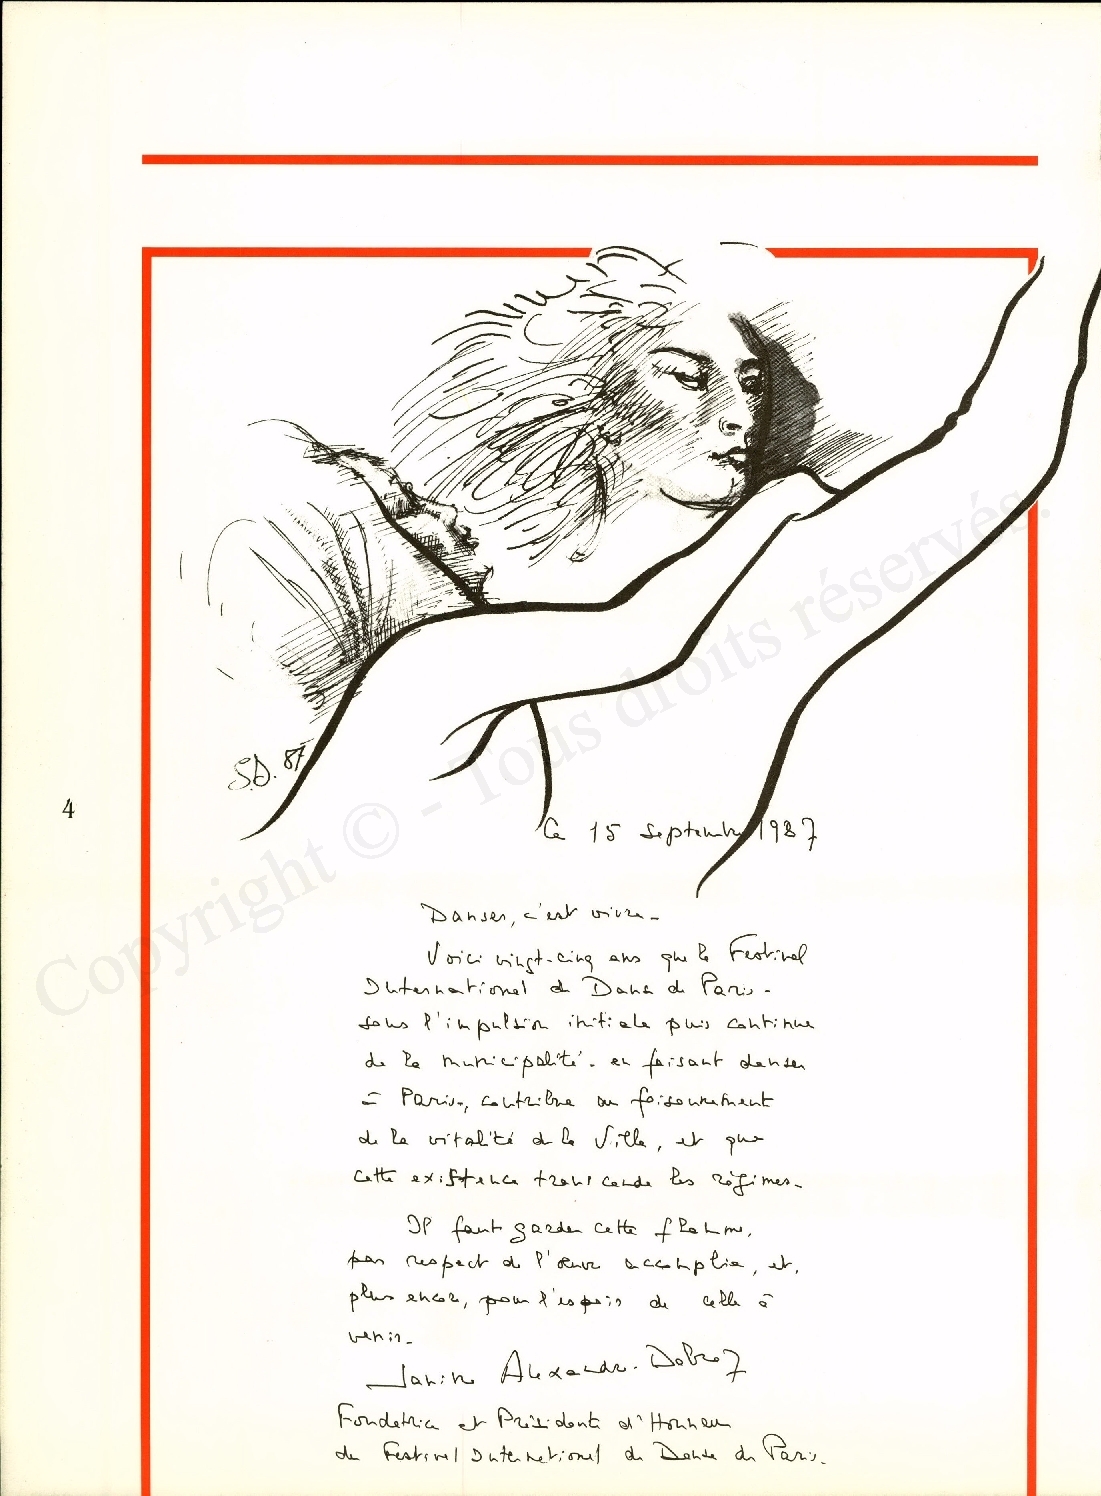 S.D. 87
4
Ce 15 septembre 1987
Danser, c'est vivre.
Voici vingt-cinq ans que le Festival
International de Danse de Paris -
sous l'impulsion initiale puis continue
de la municipalité - en faisant danser
à Paris, contribue au foisonnement
de la vitalité de la Ville, et que
cette existence transcende les régimes.
Il faut garder cette flamme,
par respect de l'œuvre accomplie, et,
plus encore, pour l'espoir de celle à
venir.
Janine Alexandre-Debray
Fondatrice et Présidente d'Honneur
du Festival International de Danse de Paris.
Copyright © - Tous droits réservés.